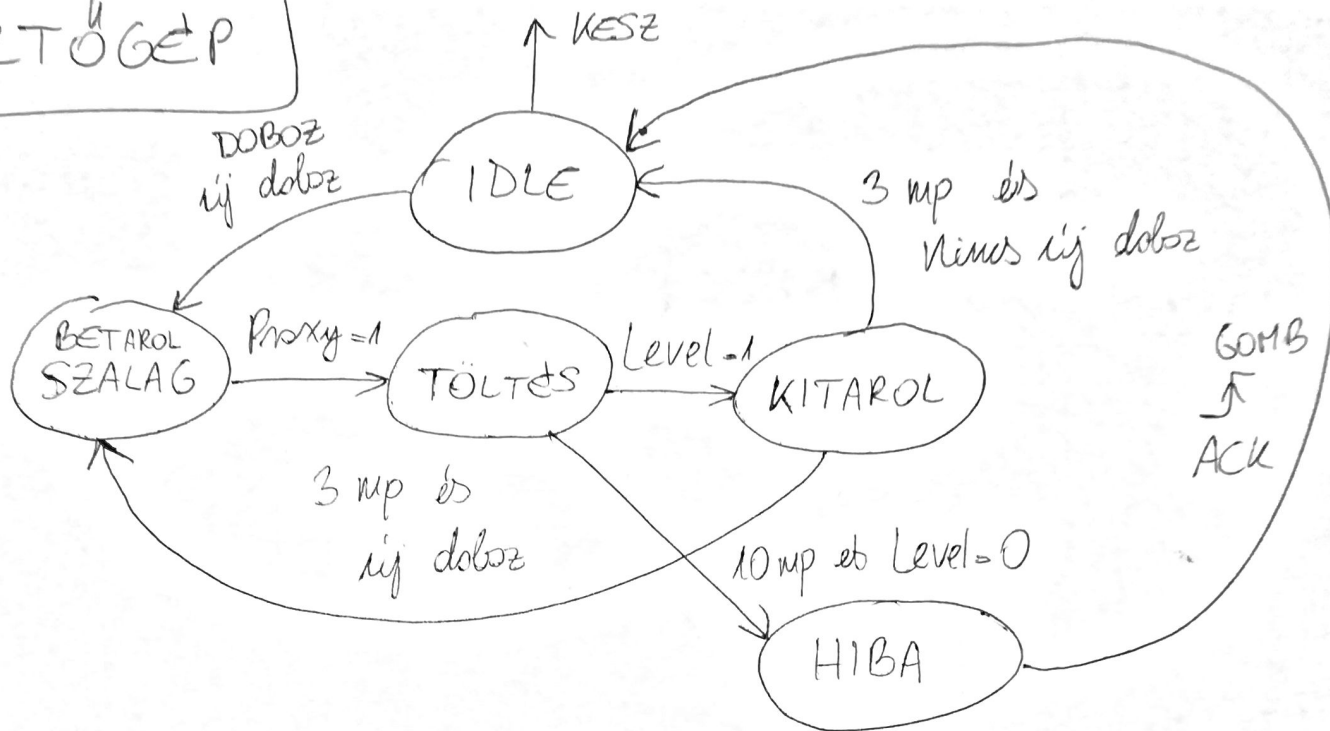 LTŐGÉP
KESZ
DOBOZ
új doboz
IDLE
3 mp és
nincs új doboz
BETAROL
SZALAG
Proxy=1
TÖLTÉS
Level=1
KITAROL
GOMB
ACK
3 mp és
új doboz
10 mp et Level=0
HIBA